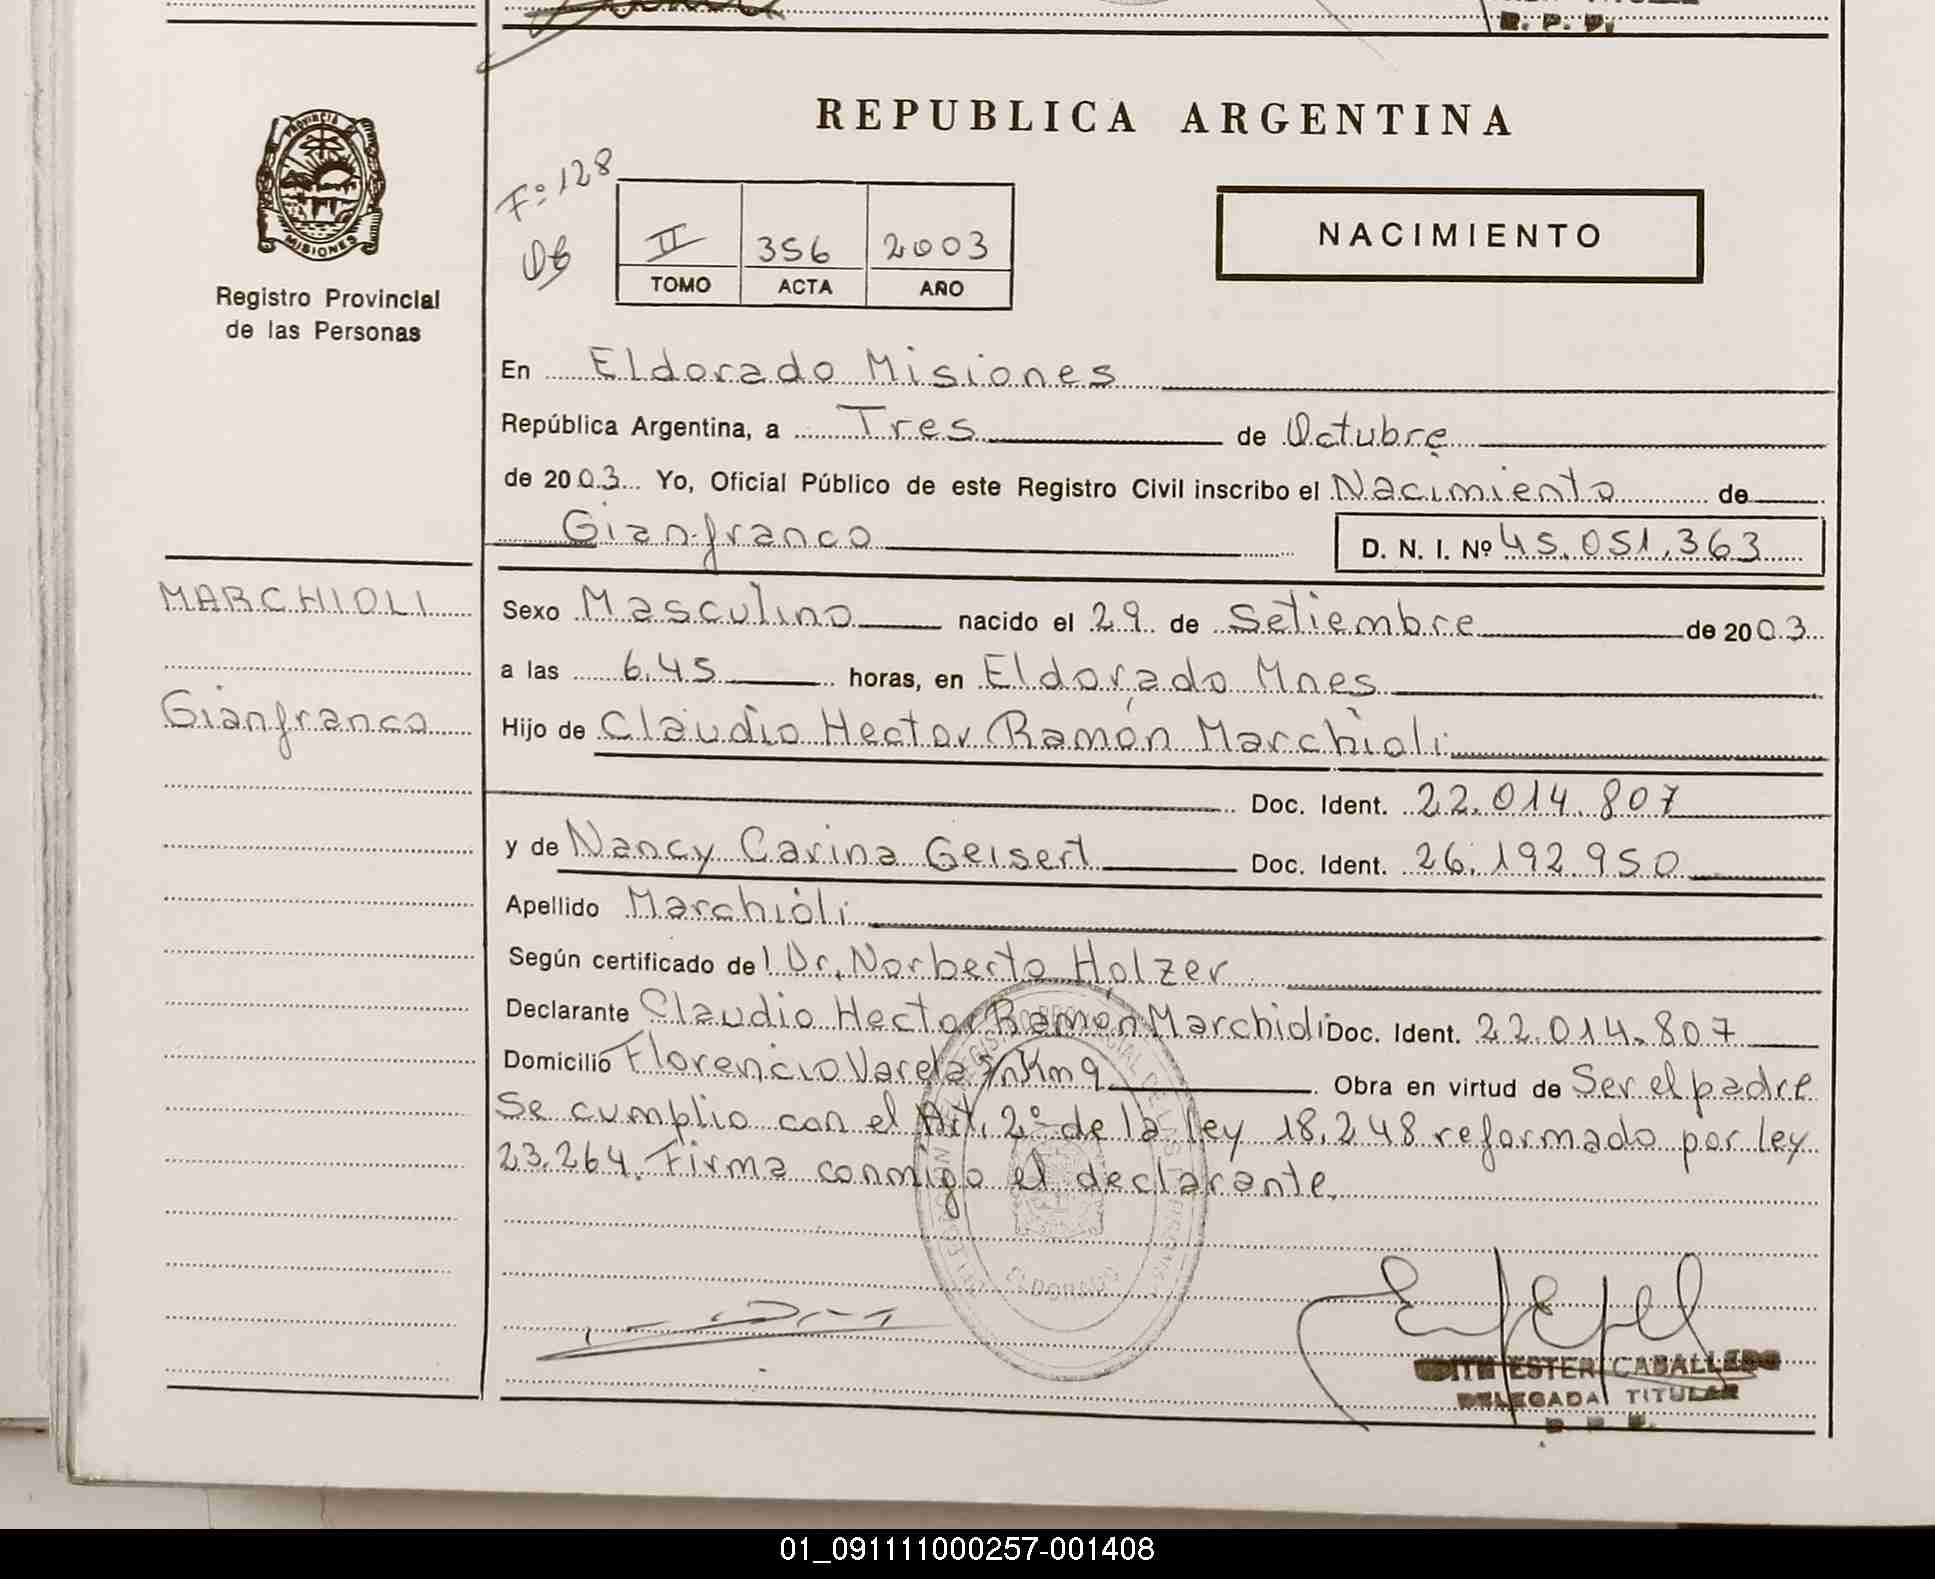 R. P. P.
PROVINCIA DE
MISIONES
Registro Provincial
de las Personas
REPUBLICA ARGENTINA
Fº 128
II 356 2003
TOMO ACTA AÑO
NACIMIENTO
En Eldorado Misiones
República Argentina, a Tres de Octubre
de 2003 Yo, Oficial Público de este Registro Civil inscribo el Nacimiento de
Gianfranco D. N. I. Nº 45.051.363
MARCHIOLI
Gianfranco
Sexo Masculino nacido el 29 de Setiembre de 2003
a las 6.45 horas, en Eldorado Mnes
Hijo de Claudio Hector Ramón Marchioli
Doc. Ident. 22.014.807
y de Nancy Carina Geisert Doc. Ident. 26.192.950
Apellido Marchioli
Según certificado del Dr. Norberto Holzer
Declarante Claudio Hector Ramón Marchioli Doc. Ident. 22.014.807
Domicilio Florencio Varela s/n Km 9 Obra en virtud de Ser el padre
Se cumplio con el Art. 2º de la ley 18.248 reformado por ley
23.264. Firma conmigo el declarante.
ELDORADO
EDITH ESTER CABALLERO
DELEGADA TITULAR
R. P. P.
01_091111000257-001408